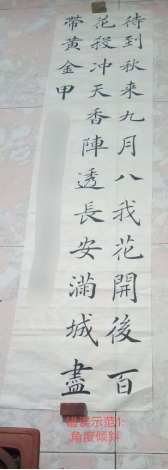 待到秋來九月八我花開後百
花殺冲天香陣透長安滿城盡
帶黃金甲
错误示范1:
角度倾斜